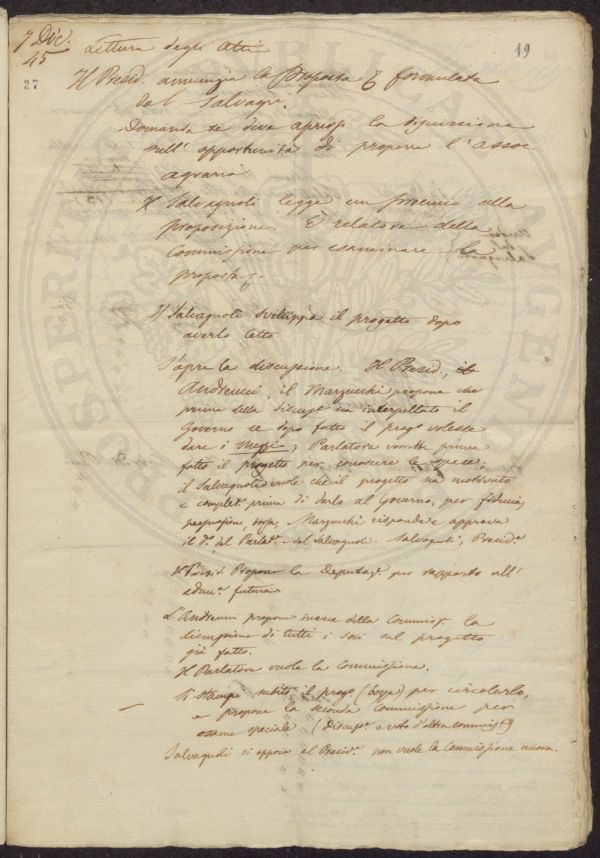 7 Dic.
45
19
27
Lettura degli Atti
Il Presid. annunzia la Proposta formulata
dal Salvagn.
Domanda se deve aprirsi la discussione
sull'opportunità di proporre l'assoc.
agraria
Il Salvagnoli legge un proemio alla
proposizione. È relatore della
Commissione per esaminare la
proposta.
Il Salvagnoli sviluppa il progetto dopo
averlo letto
S'apre la discussione. Il Presid., il
Andreucci, il Marzucchi propone che
prima della discuss. sia interpellato il
Governo se dopo fatto il prog. volesse
dare i mezzi; Parlatore vorrebbe prima
fatto il progetto per conoscere le spese;
il Salvagnoli vuole che il progetto sia motivato
e complet. prima di darlo al Governo, per fiducia,
Marzucchi risponde e approva
il d. del Parlat. e del Salvagnoli. Salvagnoli, Presid.
Il Presid. Propone la Deputaz. per rapporto all'
adun. futura
L'Andreucci propone invece della Commiss. la
discussione di tutti i soci sul progetto
già fatto.
Il Parlatore vuole la Commissione.
Si stampi subito il prog. (bozze) per circolarlo,
e propone la seconda Commissione per
esame speciale (Discuss. e voto d'altra commiss.)
Salvagnoli si oppone e il Presid. non vuole la Commissione nuova.